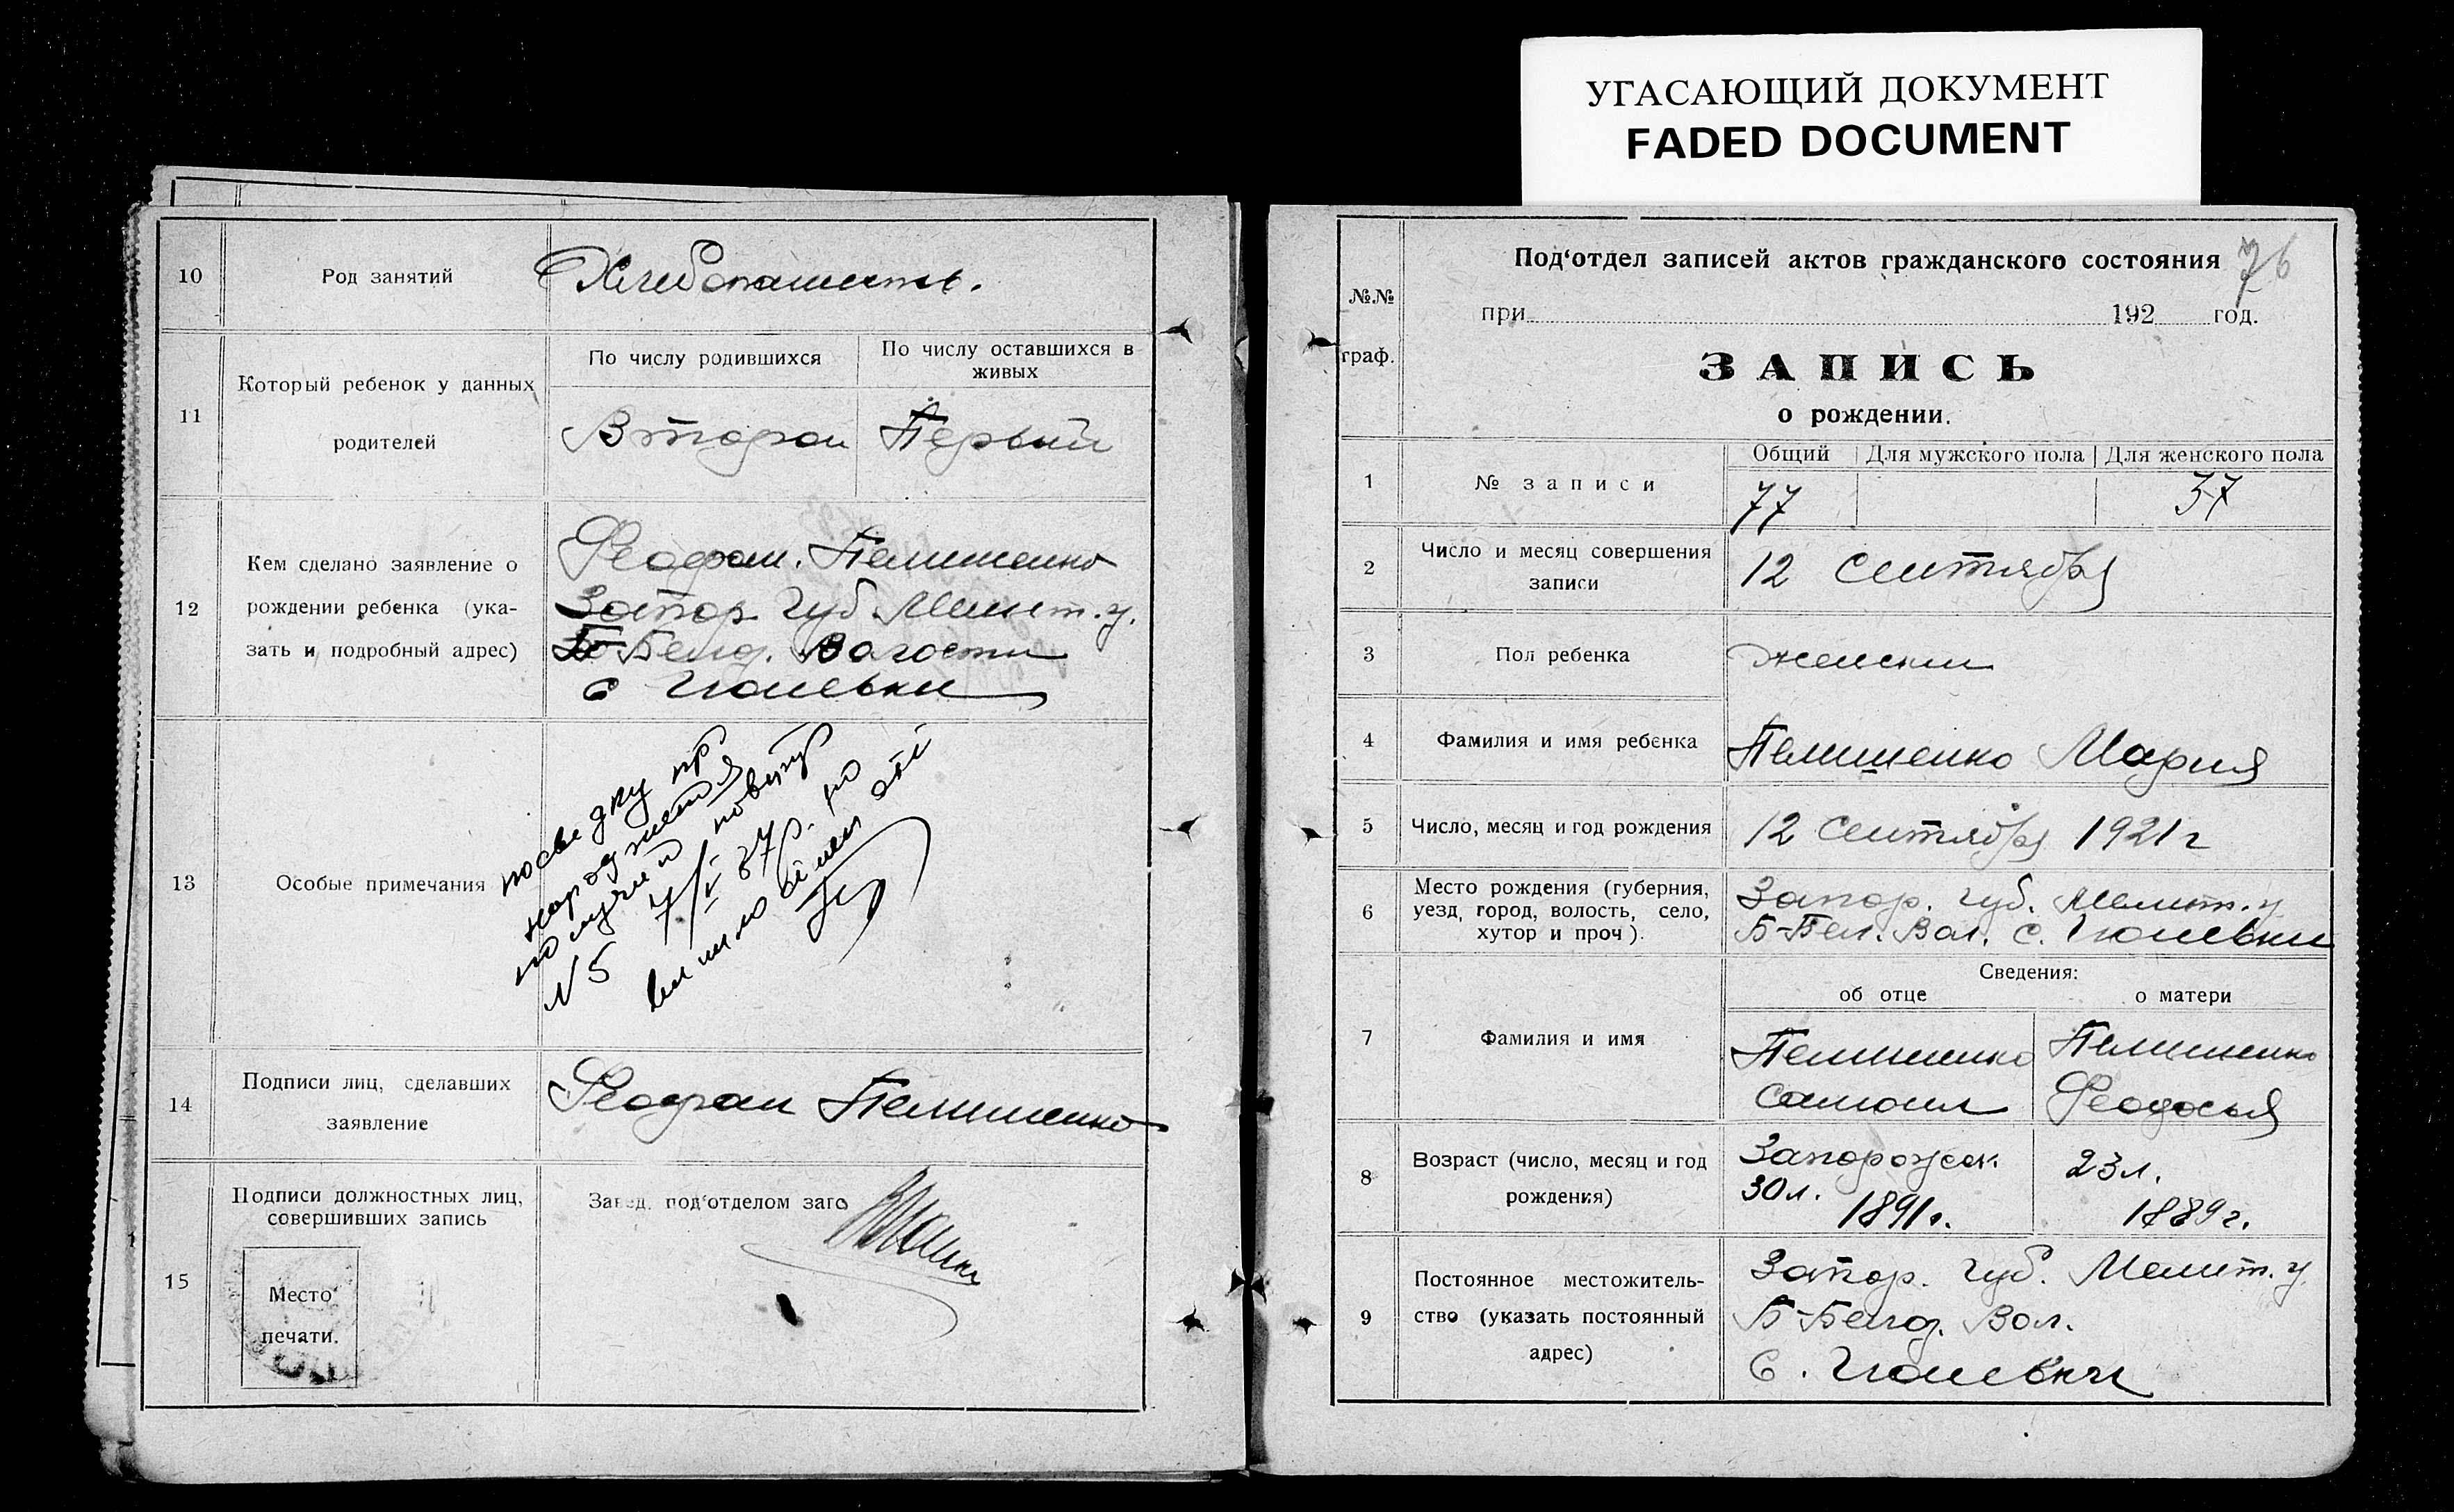 УГАСАЮЩИЙ ДОКУМЕНТ
FADED DOCUMENT
10
Род занятий
Хлебопашест.
11
Который ребенок у данных
родителей
По числу родившихся
По числу оставшихся в
живых
Второй
Первый
12
Кем сделано заявление о
рождении ребенка (ука-
зать и подробный адрес)
Феофан. Пелишенко
Запор. Губ. Мелит. у.
Б-Белоз. Волости
с
13
Особые примечания
посведку пр
народжения
получив
N 5 7/V 37р. по
14
Подписи лиц, сделавших
заявление
Феофан Пелишенко
15
Подписи должностных лиц,
совершивших запись
Место
печати.
Завед. под‘отделом загс
№№
граф.
Под‘отдел записей актов гражданского состояния
76
при 192 год.
ЗАПИСЬ
о рождении.
1
№ записи
Общий
Для мужского пола
Для женского пола
77
37
2
Число и месяц совершения
записи
12 Сентября
3
Пол ребенка
женский
4
Фамилия и имя ребенка
Пелишенко Мария
5
Число, месяц и год рождения
12 Сентября 1921 г
6
Место рождения (губерния,
уезд, город, волость, село,
хутор и проч).
Запор. губ. Мелит. у
Б-Бел. Вол. с.
Сведения:
об отце
о матери
7
Фамилия и имя
Пелишенко
Самоил
Пелишенко
Феодосья
8
Возраст (число, месяц и год
рождения)
Запорожск.
30 л.
1891 г.
23 л.
1889 г.
9
Постоянное местожитель-
ство (указать постоянный
адрес)
Запор. Губ. Мелит. у.
Б-Белоз. Вол.
С.